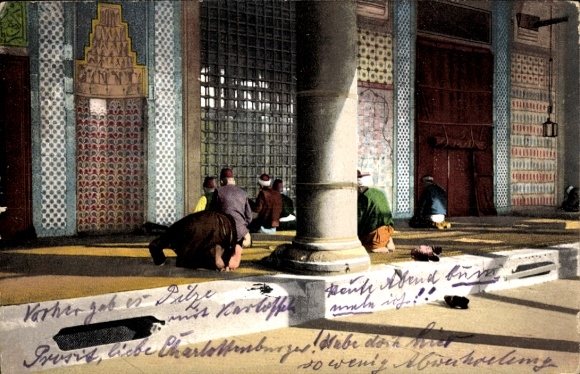 Vorher gab es Pilze
mit Kartoffeln
Heute Abend
male ich!!
Prosit, liebe Charlottenburger! Habe doch hier
so wenig Abwechselung